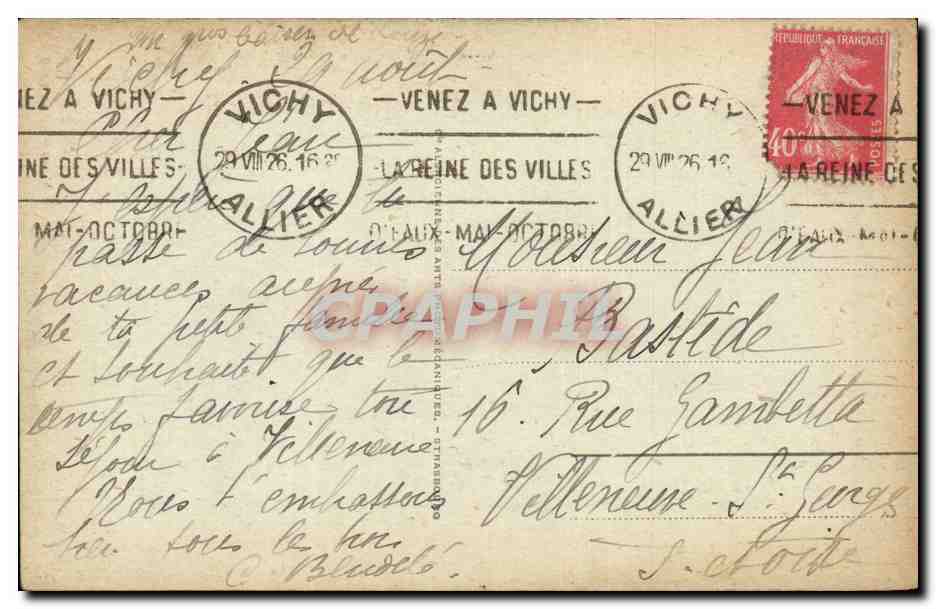 Vichy 29 août
Cher Jean
J'espère que tu
passe de bonnes
vacances auprès
de ta petite famille
et souhaite que le
temps favorise ton
séjour à Villeneuve
Nous t'embrassons
bien tous les trois
C.
VICHY
29 VIII 26. 16
ALLIER
EZ A VICHY —
INE DES VILLES-
MAI-OCTOBRE
— VENEZ A VICHY —
-LA REINE DES VILLES
D'EAUX-MAI-OCTOBRE
VICHY
29 VIII 26. 16
ALLIER
— VENEZ A
LA REINE DES
D'EAUX-MAI-
REPUBLIQUE FRANÇAISE
40c
POSTES
CARTOPHIL
STRASBOURG
Monsieur Jean
Bastède
16, Rue Gambetta
Villeneuve-St-Georges
S. et Oise